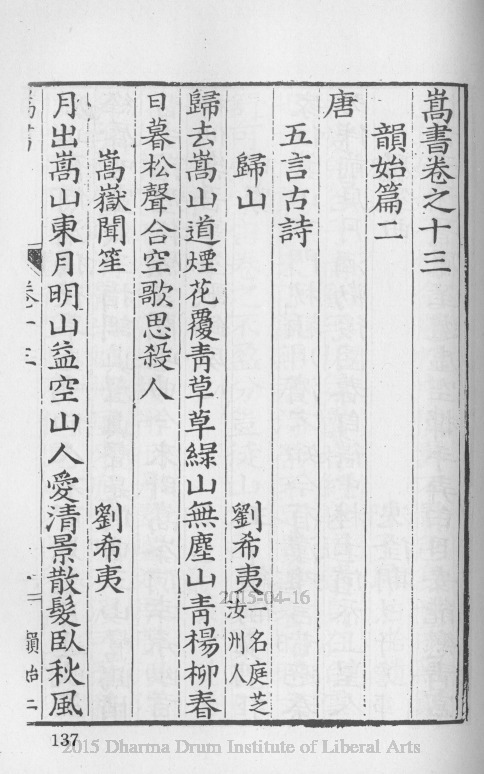 嵩書卷之十三
韻始篇二
唐
五言古詩
歸山 劉希夷 一名庭芝 汝州人
歸去嵩山道煙花覆青草草綠山無塵山青楊柳春
日暮松聲合空歌思殺人
嵩嶽聞笙 劉希夷
月出嵩山東月明山益空山人愛清景散髮臥秋風
嵩書 卷十三 韻始二
137
2015-04-16
2015 Dharma Drum Institute of Liberal Arts